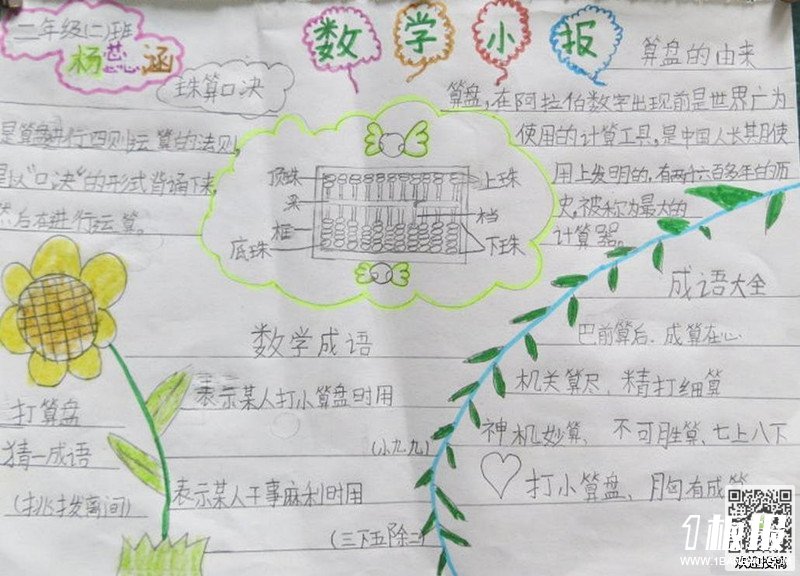 二年级(二)班
杨蕊涵
数学小报
珠算口决
是算盘进行四则运算的法则,
是以"口决"的形式背诵下来,
然后在进行运算。
顶珠
梁
框
底珠
上珠
档
下珠
算盘的由来
算盘,在阿拉伯数字出现前是世界广为
使用的计算工具,是中国人长其月使
用上发明的,有两千六百多年的历
史,被称为最大的
计算器。
成语大全
巴前算后.成算在心
机关算尽、精打细算
神机妙算、不可胜算、七上八下
打小算盘、月匈有成算
数学成语
表示某人打小算盘时用
(小九九)
表示某人干事麻利时用
(三下五除二)
打算盘
猜一成语
(挑拨离间)
1板报
欢迎投稿